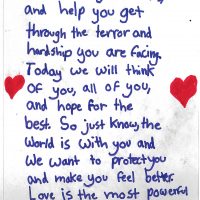 and help you get
through the terror and
hardship you are facing.
Today we will think
of you, all of you,
and hope for the
best. So just know, the
world is with you and
we want to protect you
and make you feel better.
Love is the most powerful